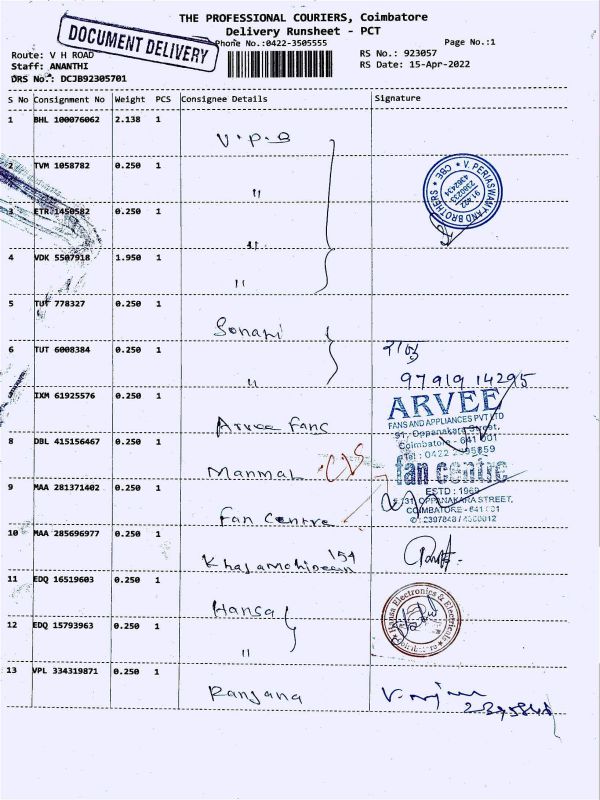 THE PROFESSIONAL COURIERS, Coimbatore
Delivery Runsheet - PCT
DOCUMENT DELIVERY
Phone No.:0422-3505555
Page No.:1
Route: V H ROAD
RS No.: 923057
Staff: ANANTHI
RS Date: 15-Apr-2022
DRS No.: DCJB92305701
S No Consignment No Weight PCS Consignee Details Signature
1 BHL 100076062 2.138 1 V.P.B
2 TVM 1058782 0.250 1 "
V. PERIASWAMY AND BROTHERS * CBE *
3 ETR 1450582 0.250 1 "
4 VDK 5507918 1.950 1 "
5 TUT 778327 0.250 1 Sonani
6 TUT 6008384 0.250 1 "
97919 14295
IXM 61925576 0.250 1 Arvee Fans
ARVEE
FANS AND APPLIANCES PVT LTD
91, Oppanakara Street,
Coimbatore - 641 001
8 DBL 415156467 0.250 1 Manmal
fan centre
ESTD : 1969
9 MAA 281371402 0.250 1 Fan Centre
OPPANAKARA STREET,
COIMBATORE - 641 001
10 MAA 285696977 0.250 1 Khajamohideen
11 EDQ 16519603 0.250 1 Hansa
Hansa Electronics & Electricals
12 EDQ 15793963 0.250 1 "
13 VPL 334319871 0.250 1 Ranjana